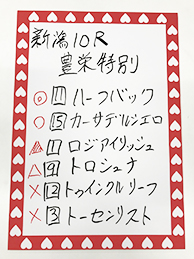 新潟10R
豊栄特別
◎ 11 ハーフバック
○ 15 カーサデルシエロ
▲ 1 ロジアイリッシュ
△ 9 トロシュナ
× 12 トゥインクルリーフ
× 3 トーセンリスト